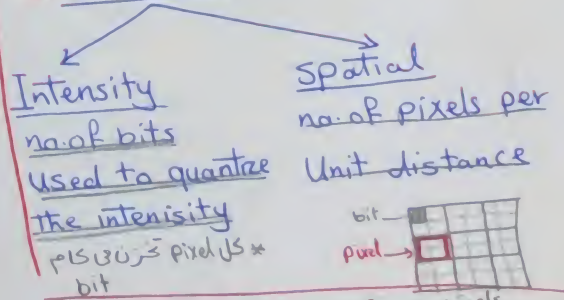 Intensity
no. of bits
used to quantize
the intenisity
* كل pixel تخزن في كام
bit
Spatial
no. of pixels per
Unit distance
bit
pixel